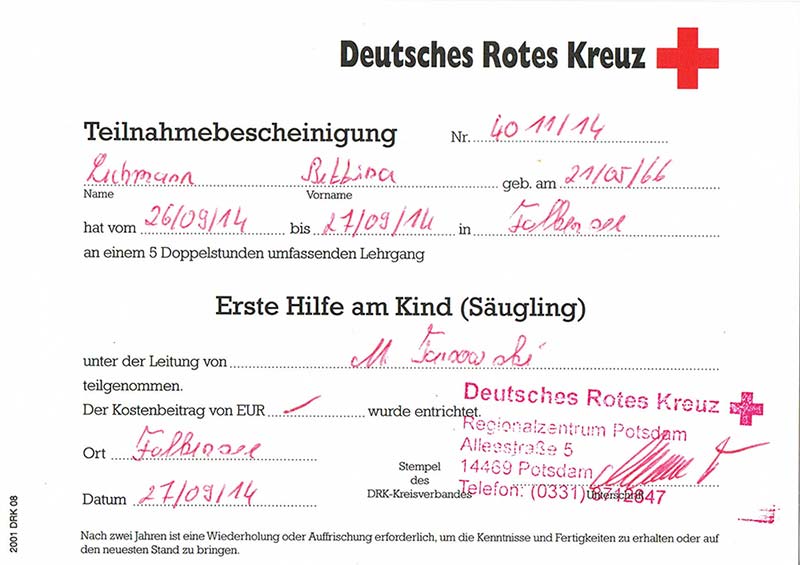 Deutsches Rotes Kreuz
Teilnahmebescheinigung Nr. 40 11/14
Luhmann Bettina geb. am 21/05/66
Name Vorname
hat vom 26/09/14 bis 27/09/14 in Falkensee
an einem 5 Doppelstunden umfassenden Lehrgang
Erste Hilfe am Kind (Säugling)
unter der Leitung von M
teilgenommen.
Der Kostenbeitrag von EUR wurde entrichtet.
Ort Falkensee
Datum 27/09/14
Stempel
des
DRK-Kreisverbandes
Unterschrift
Deutsches Rotes Kreuz
Regionalzentrum Potsdam
Alleestraße 5
14469 Potsdam
Telefon: (0331)
Nach zwei Jahren ist eine Wiederholung oder Auffrischung erforderlich, um die Kenntnisse und Fertigkeiten zu erhalten oder auf
den neuesten Stand zu bringen.
2001 DRK 08